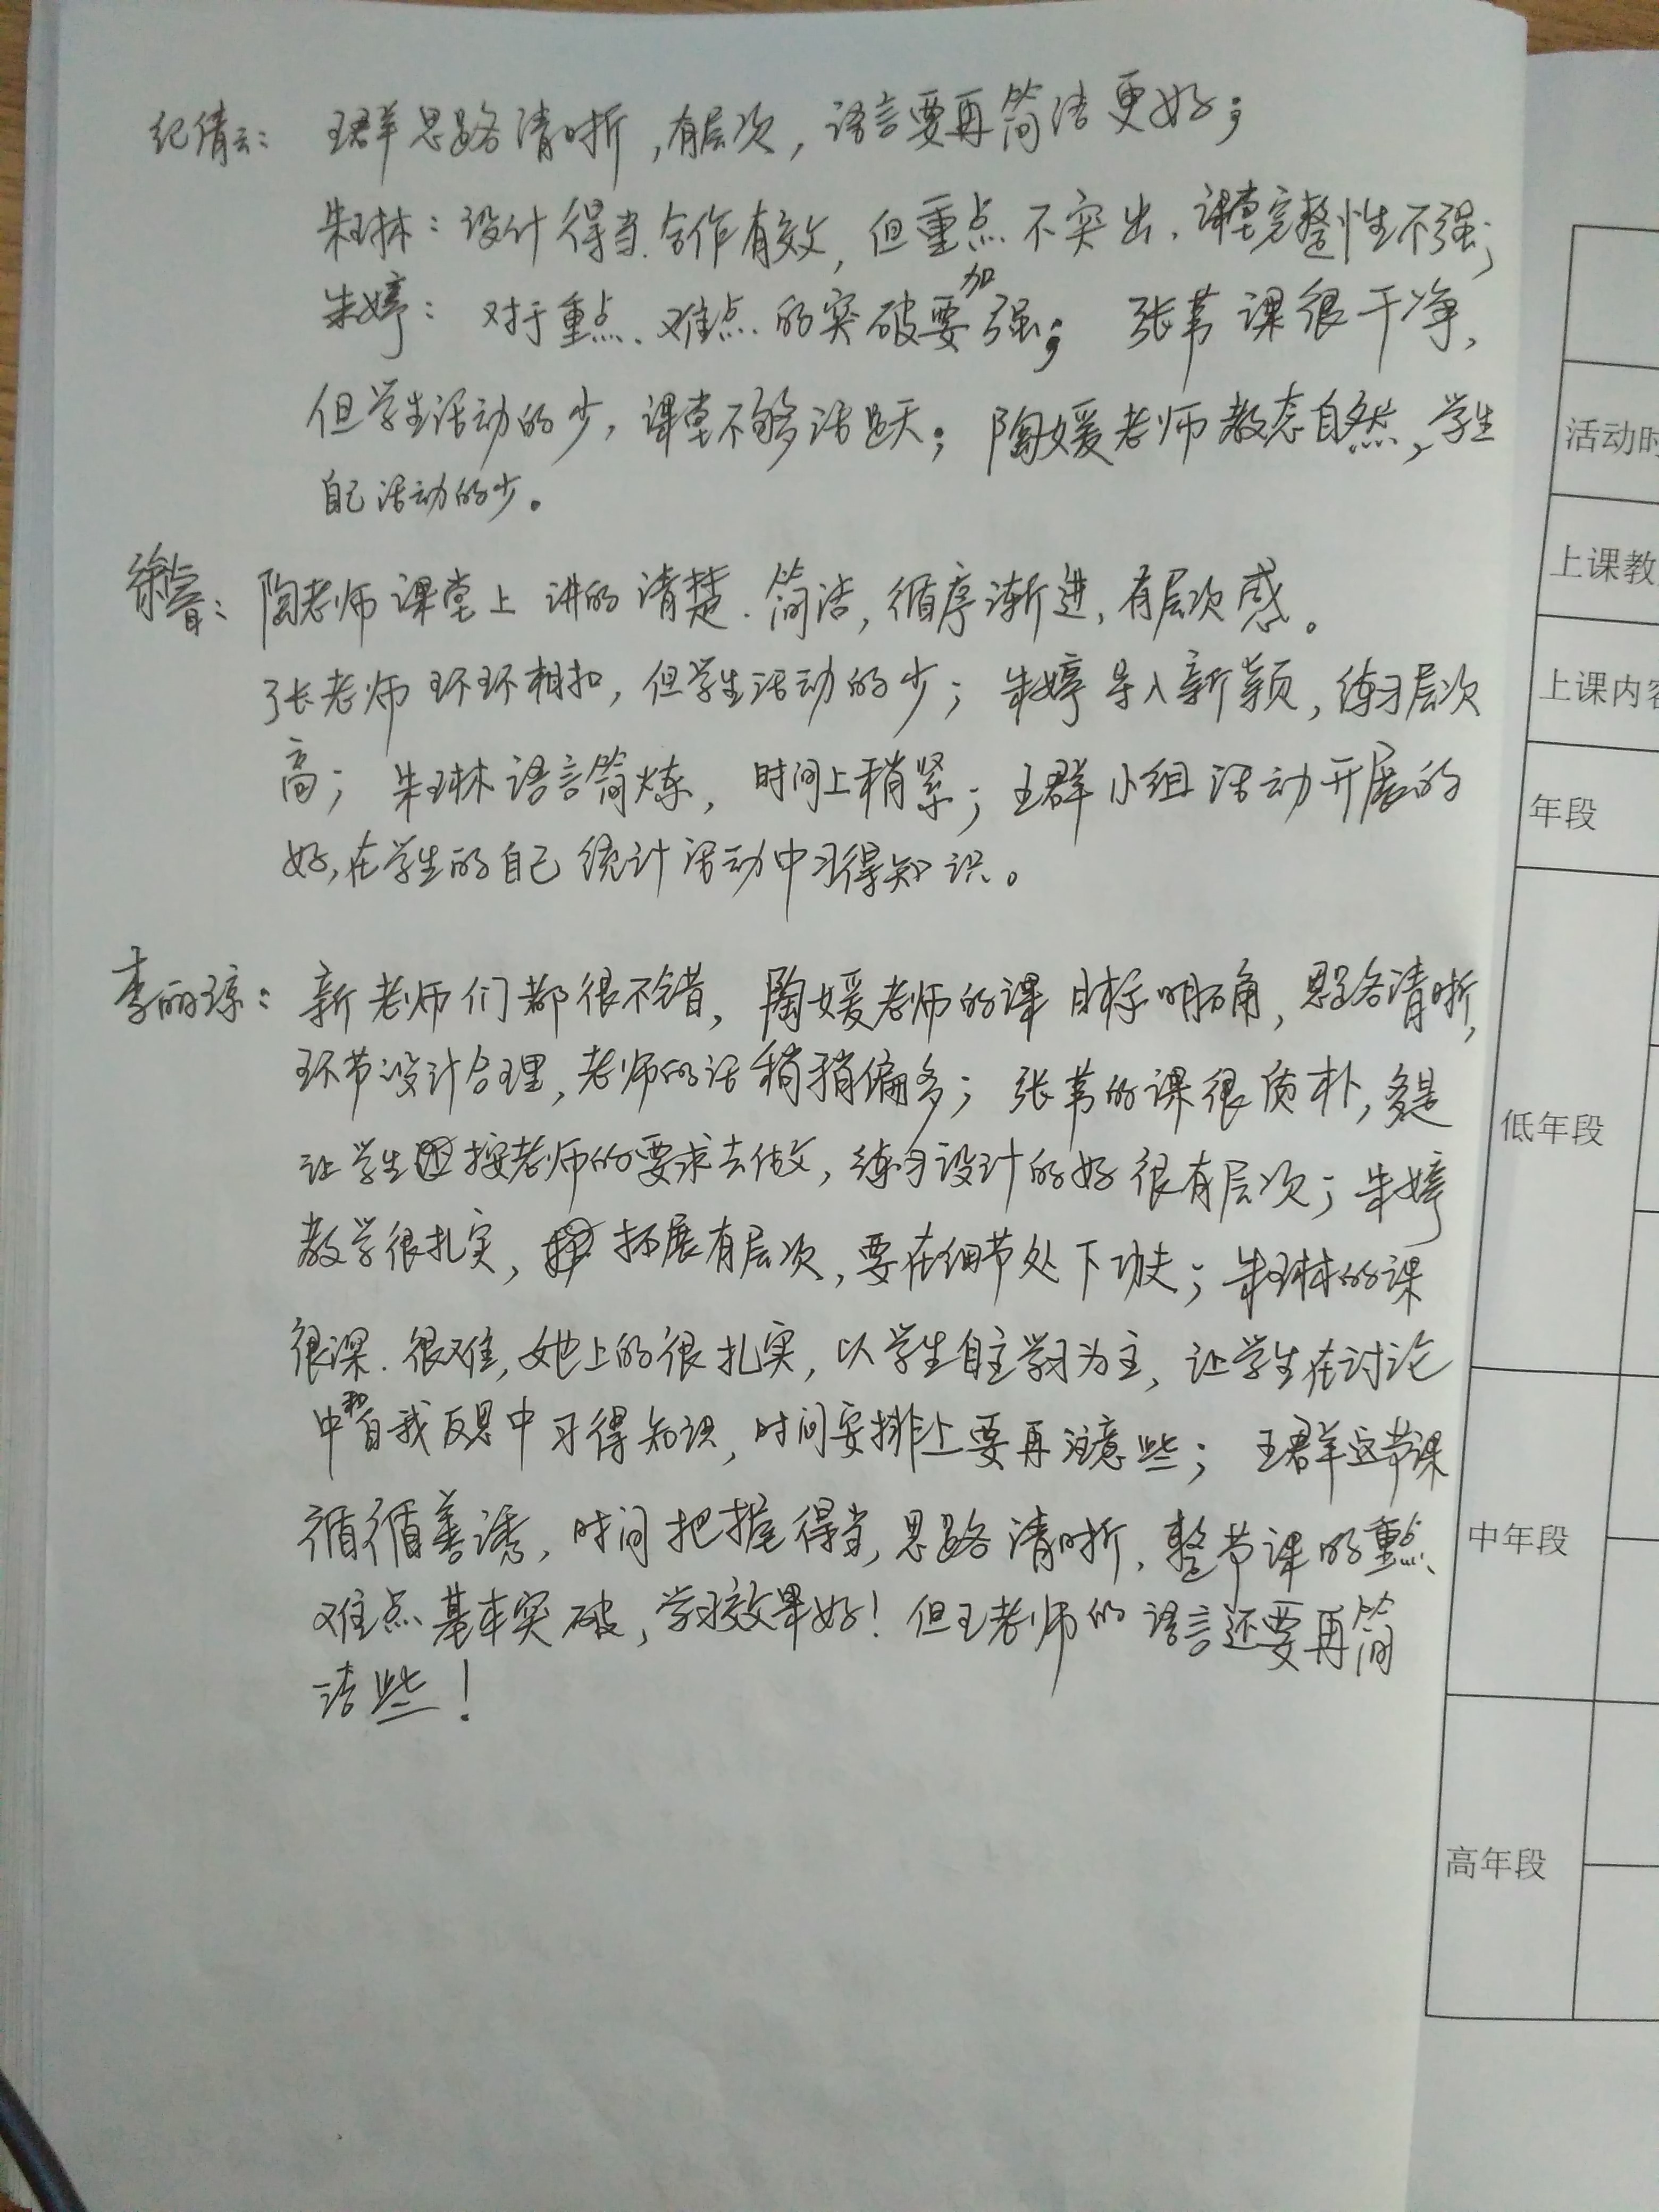 纪倩云： 王群思路清晰，有层次，语言要再简洁更好；
朱琳：设计得当、合作有效，但重点不突出、课堂完整性不强；
朱婷：对于重点、难点的突破要加强； 张苇课很干净，
但学生活动的少，课堂不够活跃；陶媛老师教态自然，学生
自己活动的少。
徐睿：陶老师课堂上讲的清楚、简洁，循序渐进，有层次感。
张老师环环相扣，但学生活动的少；朱婷导入新颖，练习层次
高；朱琳语言简炼，时间上稍紧；王群小组活动开展的
好，在学生的自己统计活动中习得知识。
李丽琼：新老师们都很不错，陶媛老师的课目标明确，思路清晰，
环节设计合理，老师的话稍稍偏多；张苇的课很质朴，多是
让学生按老师的要求去做，练习设计的好很有层次；朱婷
教学很扎实，拓展有层次，要在细节处下功夫；朱琳的课
很深、很难，她上的很扎实，以学生自主学习为主，让学生在讨论
中和自我反思中习得知识，时间安排上要再注意些；王群这节课
循循善诱，时间把握得当，思路清晰，整节课的重点、
难点基本突破，学习效果好！但王老师的语言还要再简
洁些！
活动时
上课教
上课内容
年段
低年段
中年段
高年段